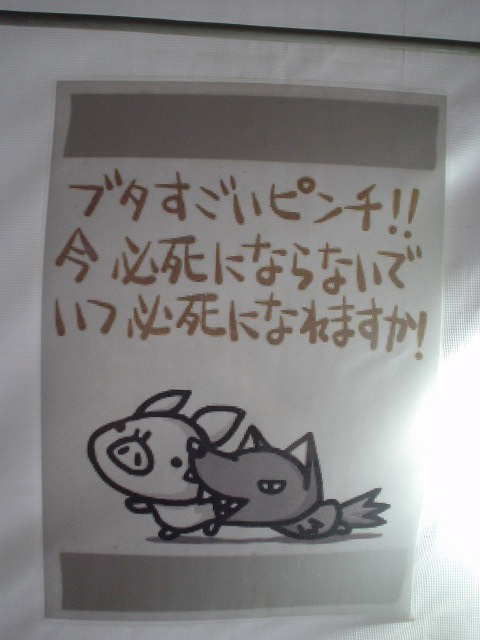 ブタすごいピンチ!!
今必死にならないで
いつ必死になれますか!